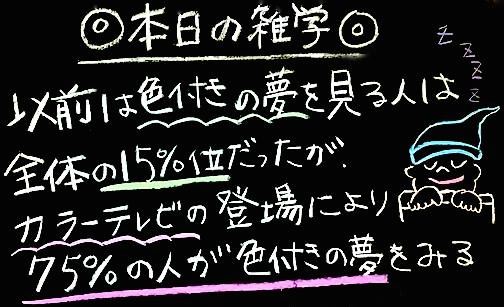 ◎本日の雑学◎
Z
Z
Z
Z
以前は色付きの夢を見る人は
全体の15%位だったが、
カラーテレビの登場により
75%の人が色付きの夢をみる